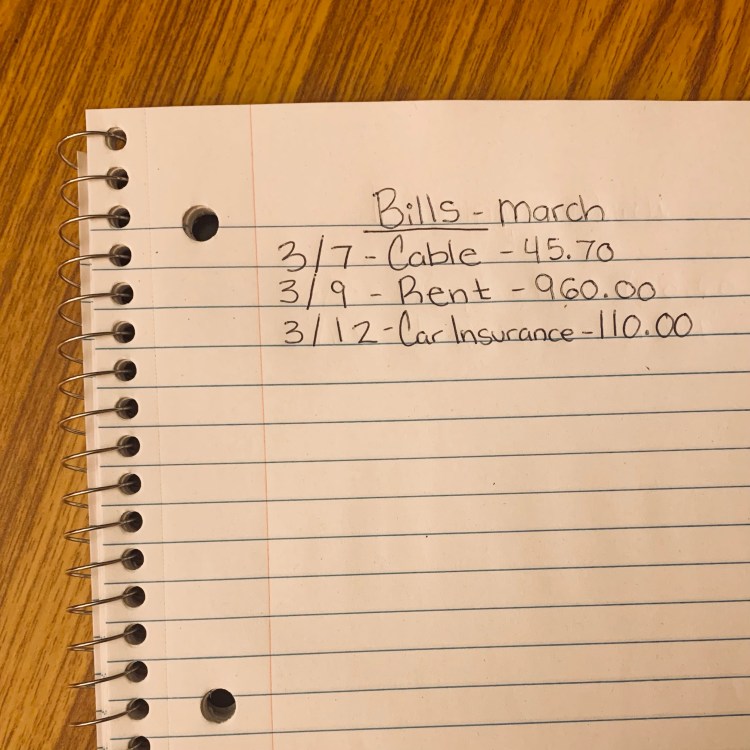 Bills - March
3/7 - Cable - 45.70
3/9 - Rent - 960.00
3/12 - Car Insurance - 110.00